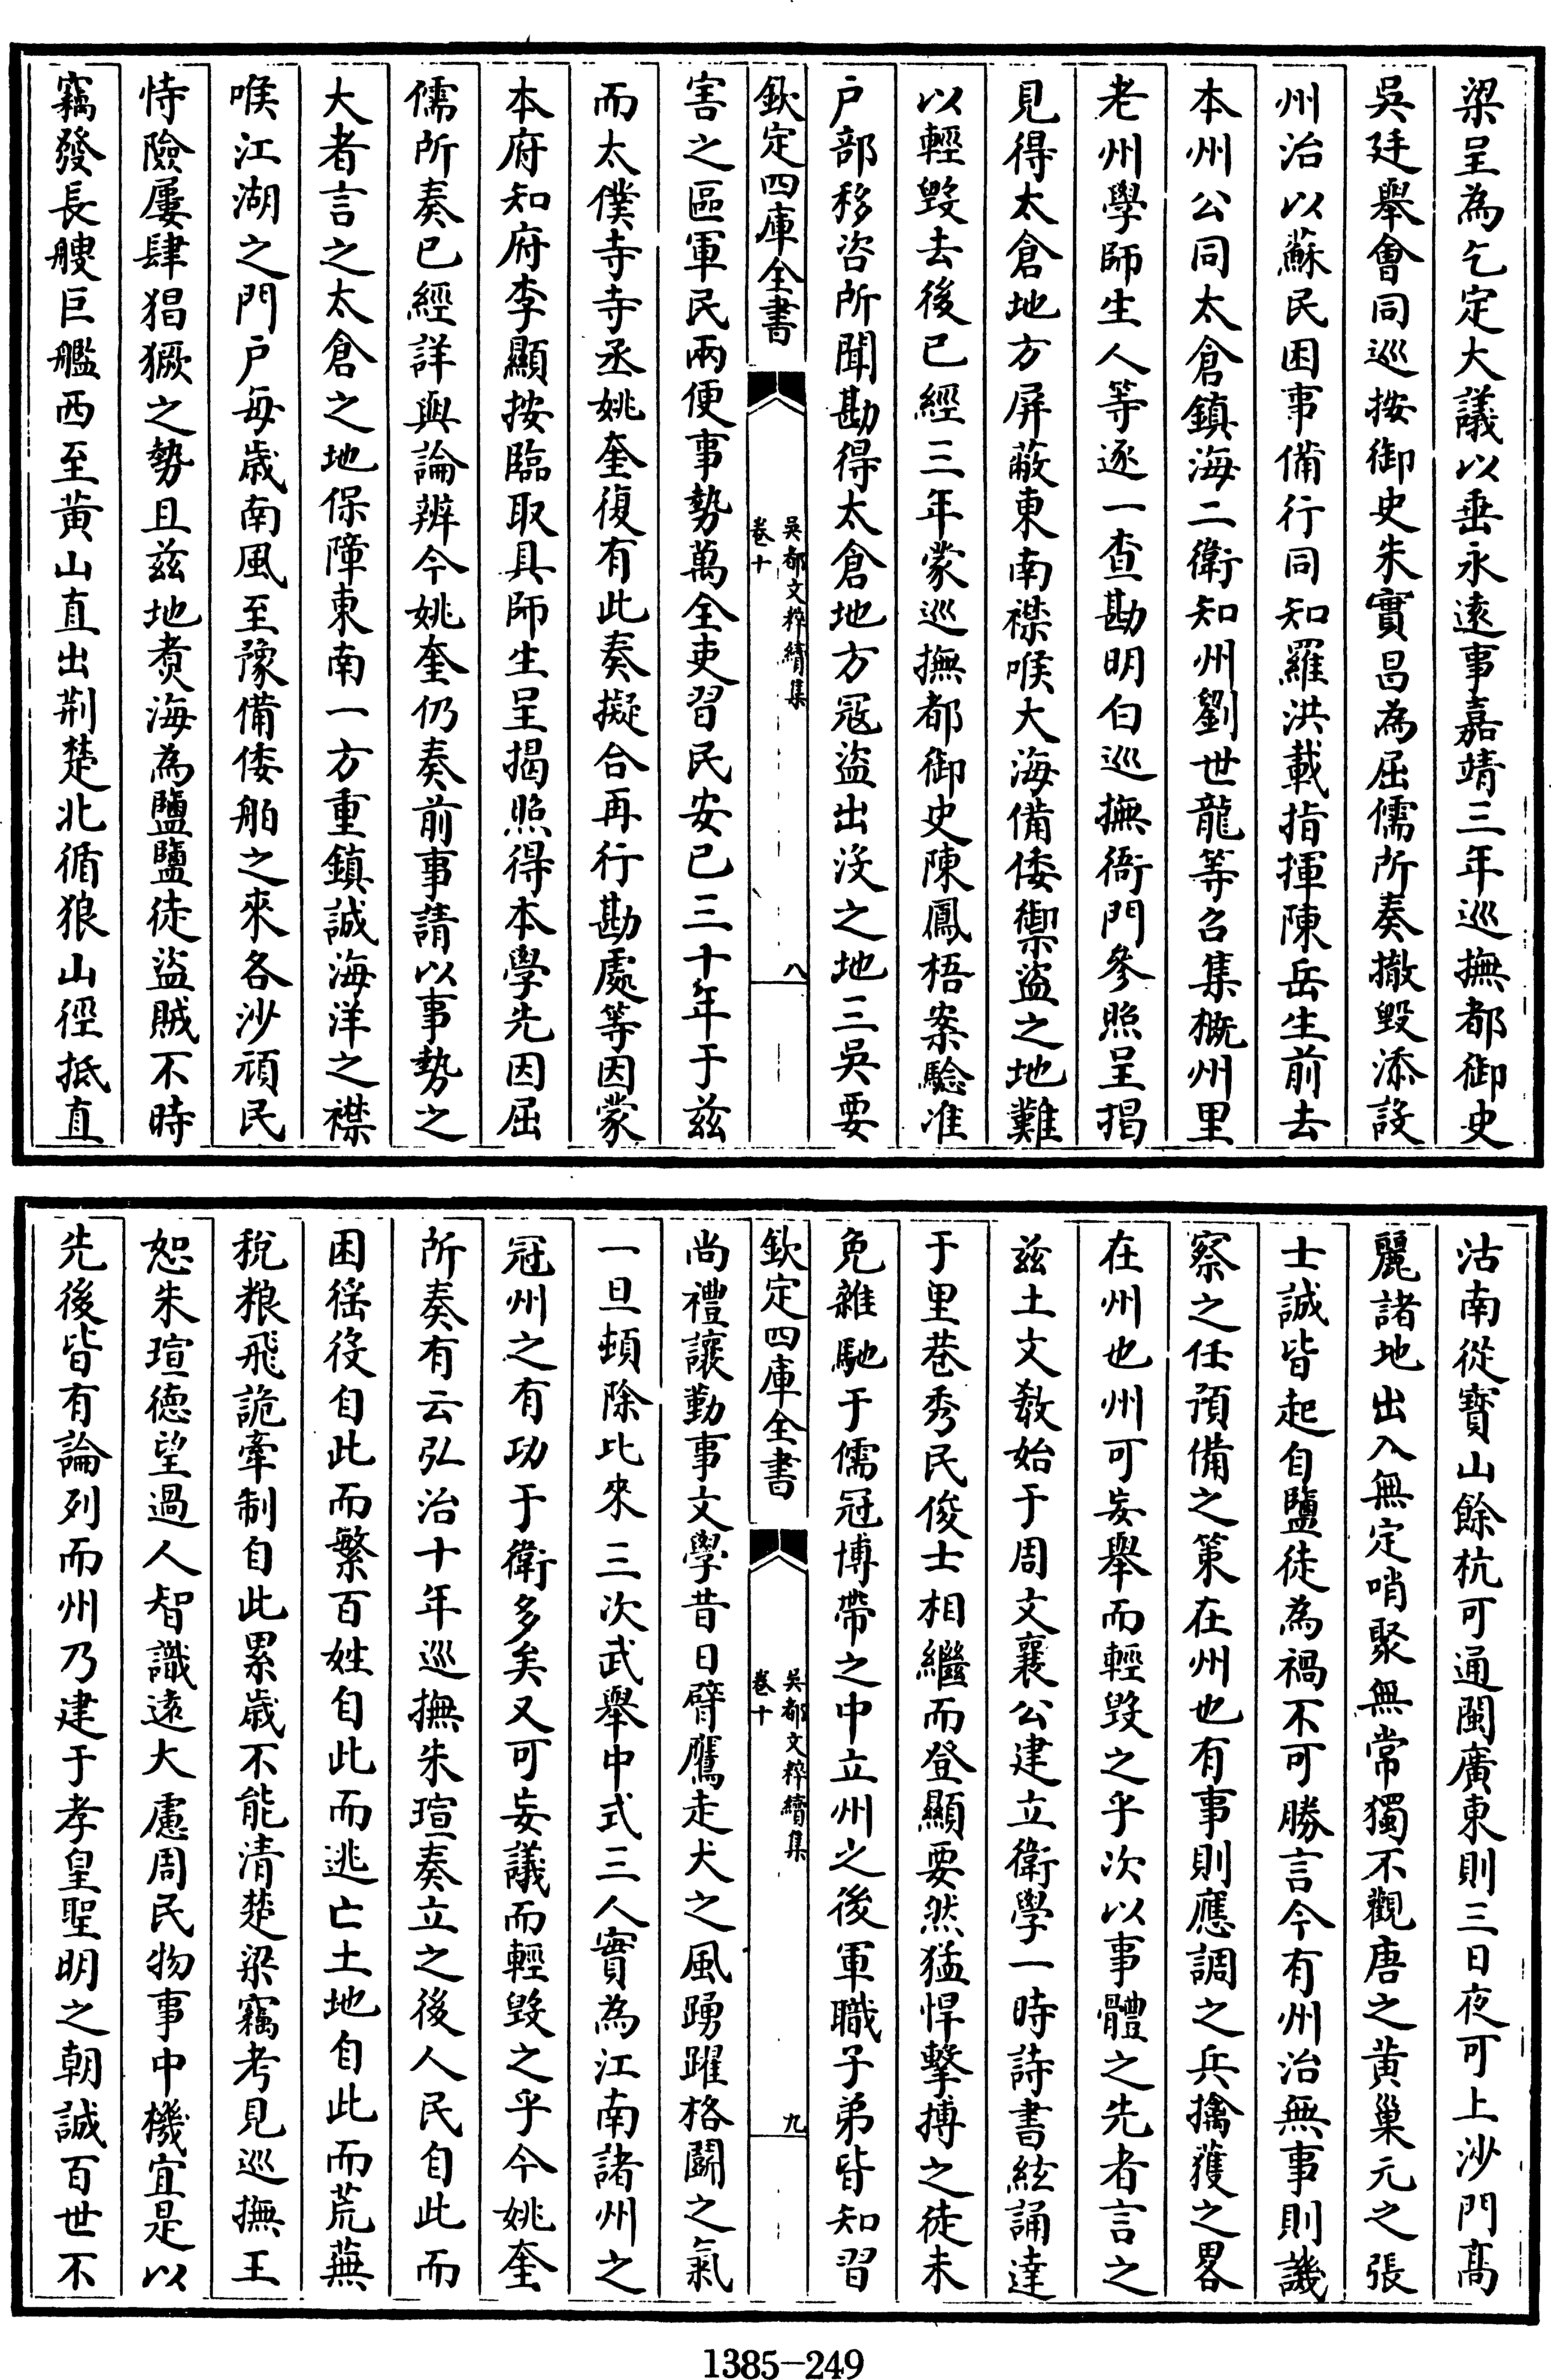 梁呈為乞定大議以垂永遠事嘉靖三年巡撫都御史
吳廷舉會同巡按御史朱實昌為屈儒所奏撤毀添設
州治以蘇民困事備行同知羅洪載指揮陳岳生前去
本州公同太倉鎮海二衛知州劉世龍等召集概州里
老州學師生人等逐一查勘明白巡撫衙門參照呈揭
見得太倉地方屏蔽東南襟喉大海備倭禦盜之地難
以輕毀去後已經三年蒙巡撫都御史陳鳳梧案驗准
户部移咨所聞勘得太倉地方冦盜出沒之地三吳要
欽定四庫全書
吳都文粹續集
卷十
八
害之區軍民兩便事勢萬全吏習民安已三十年于兹
而太僕寺寺丞姚奎復有此奏擬合再行勘處等因蒙
本府知府李顯按臨取具師生呈揭照得本學先因屈
儒所奏已經詳與論辨今姚奎仍奏前事請以事勢之
大者言之太倉之地保障東南一方重鎮誠海洋之襟
喉江湖之門户每歲南風至豫備倭舶之來各沙頑民
恃險屢肆猖獗之勢且兹地煑海為鹽鹽徒盜賊不時
竊發長艘巨艦西至黃山直出荆楚北循狼山徑抵直
沽南從寶山餘杭可通閩廣東則三日夜可上沙門髙
麗諸地出入無定哨聚無常獨不觀唐之黃巢元之張
士誠皆起自鹽徒為禍不可勝言今有州治無事則譏
察之任預備之策在州也有事則應調之兵擒獲之畧
在州也州可妄舉而輕毀之乎次以事體之先者言之
兹土文敎始于周文襄公建立衛學一時詩書絃誦達
于里巷秀民俊士相繼而登顯要然猛悍擊搏之徒未
免雜馳于儒冠博帶之中立州之後軍職子弟皆知習
欽定四庫全書
吳都文粹續集
卷十
九
尚禮讓勤事文學昔日臂鷹走犬之風踴躍格鬭之氣
一旦頓除比來三次武舉中式三人實為江南諸州之
冠州之有功于衛多矣又可妄議而輕毀之乎今姚奎
所奏有云弘治十年巡撫朱瑄奏立之後人民自此而
困徭役自此而繁百姓自此而逃亡土地自此而荒蕪
稅粮飛詭牽制自此累歲不能清楚梁竊考見巡撫王
恕朱瑄德望過人智識遠大慮周民物事中機宜是以
先後皆有論列而州乃建于孝皇聖明之朝誠百世不
1385-249